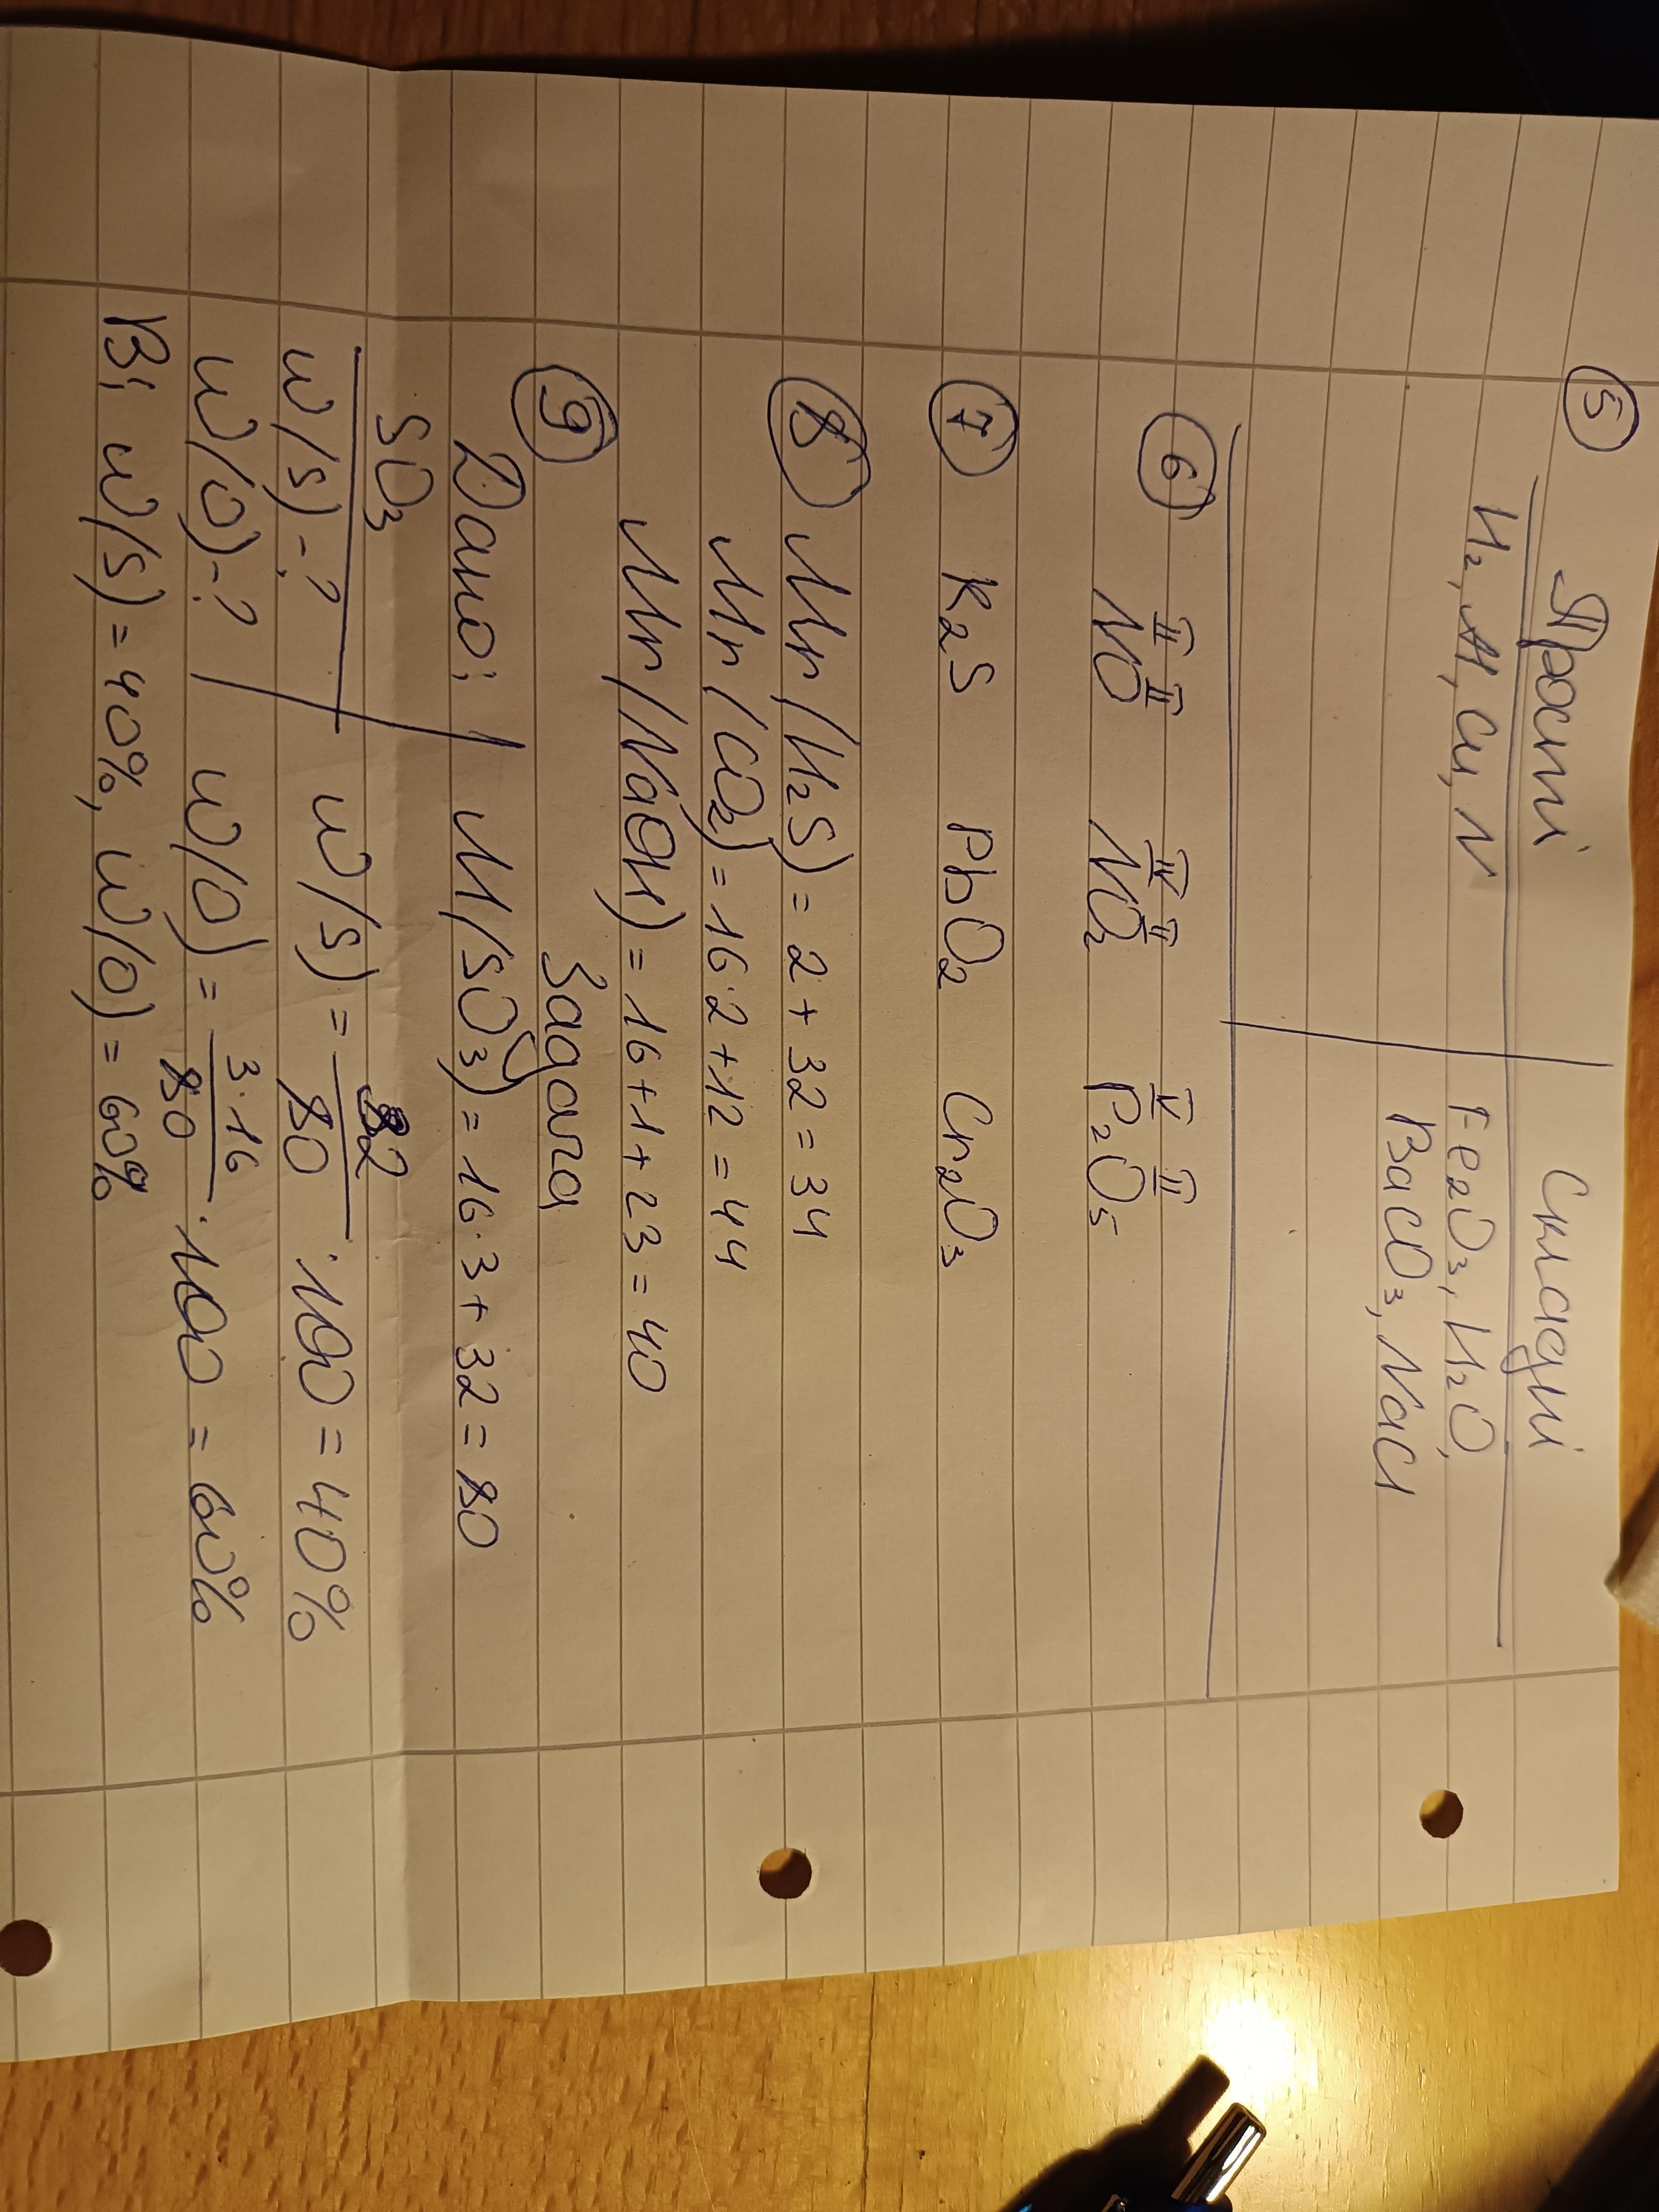 5 Прості Складні
H₂, Al, Cu, N Fe₂O₃, H₂O,
BaCO₃, NaCl
6 II II IV II V II
NO NO₂ P₂O₅
7 K₂S PbO₂ Cr₂O₃
8 Mr(H₂S) = 2 + 32 = 34
Mr(CO₂) = 16·2 + 12 = 44
Mr(NaOH) = 16 + 1 + 23 = 40
9 Задача
Дано: M(SO₃) = 16·3 + 32 = 80
SO₃
w(S) - ? w(S) = 32/80 · 100 = 40%
w(O) - ? w(O) = 3·16/80 · 100 = 60%
В: w(S) = 40%, w(O) = 60%